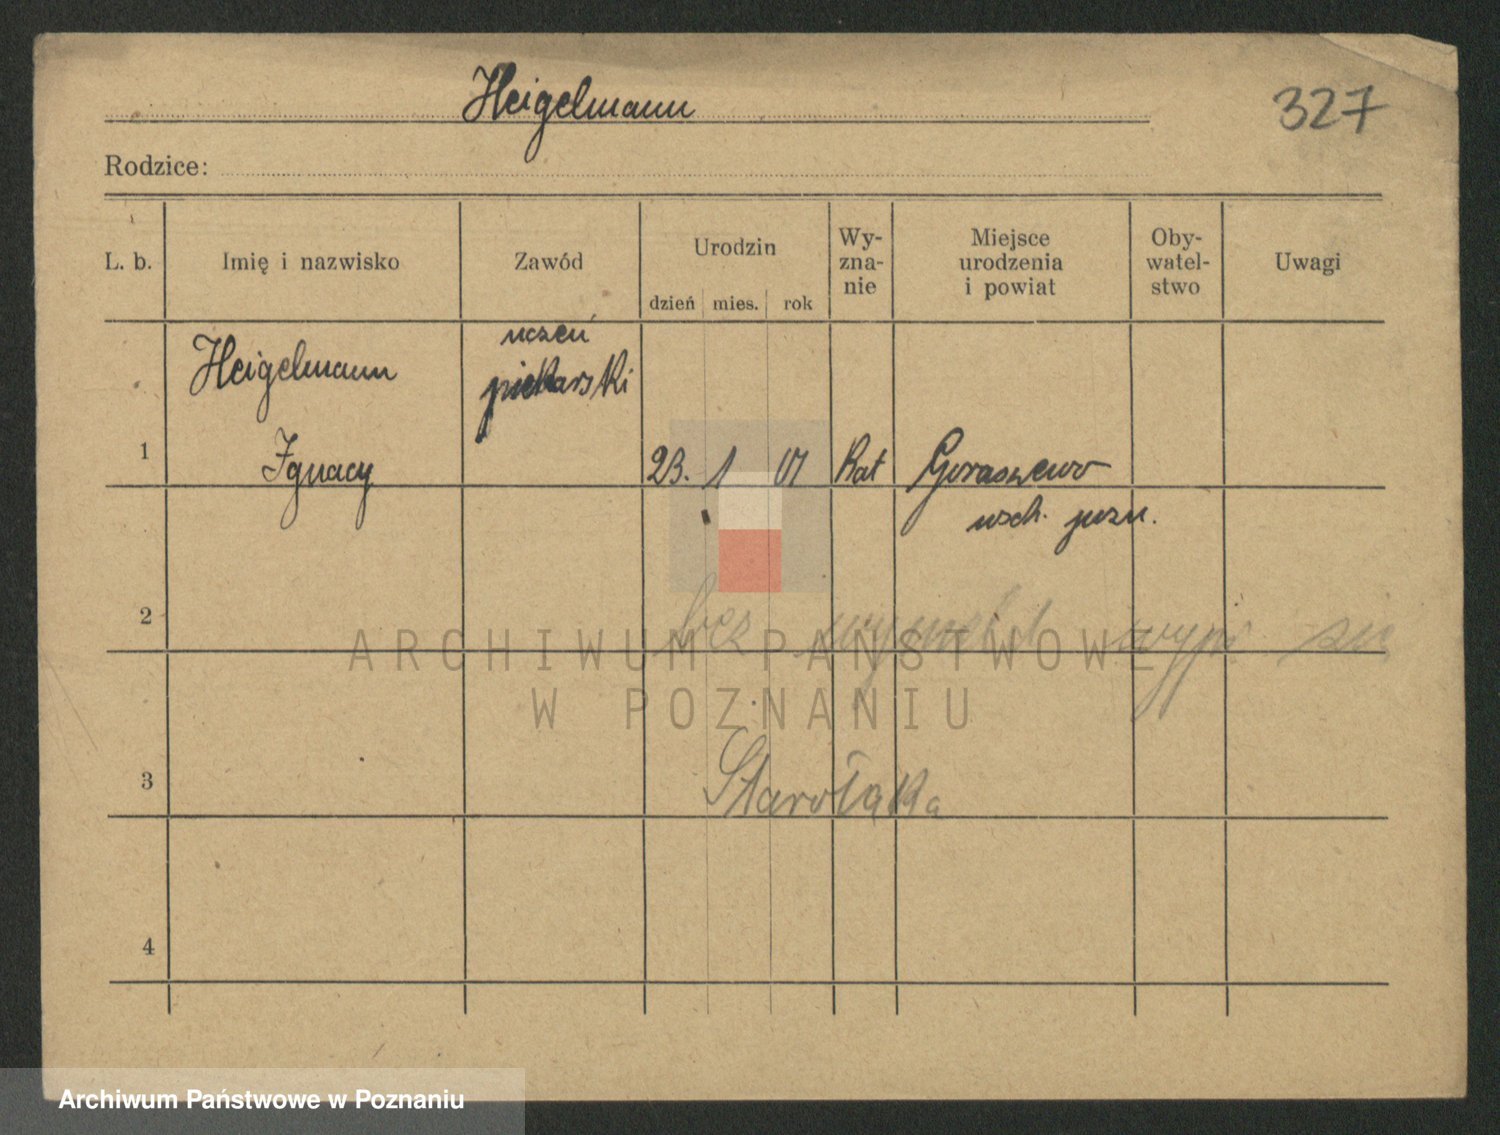 Heigelmann
327
Rodzice:
L. b.
Imię i nazwisko
Zawód
Urodzin
dzień mies. rok
Wy-
zna-
nie
Miejsce
urodzenia
i powiat
Oby-
watel-
stwo
Uwagi
1
Heigelmann
Ignacy
uczeń
piekarski
23. 1 01
Kat
Goraszewo
wsch. pozn.
2
bez wymeld wypr się
3
Starołąka
4
ARCHIWUM PAŃSTWOWE
W POZNANIU
Archiwum Państwowe w Poznaniu